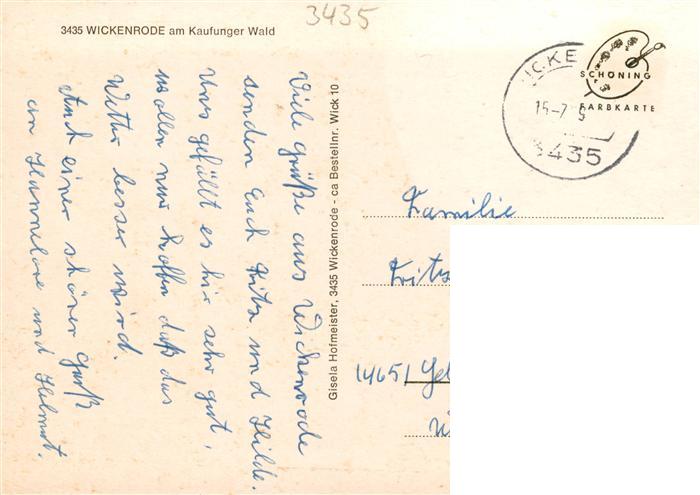 3435
3435 WICKENRODE am Kaufunger Wald
Viele Grüße aus Wickenrode
senden Euch Fritz und Hilde.
Uns gefällt es hir sehr gut,
wollen nur hoffen daß das
Wetter besser wird.
Auch einer schöner Gruß
an Hannelore und Helmut.
Gisela Hofmeister, 3435 Wickenrode - ca Bestellnr. Wick 10
SCHÖNING
FARBKARTE
15-7
3435
Familie
Fritz